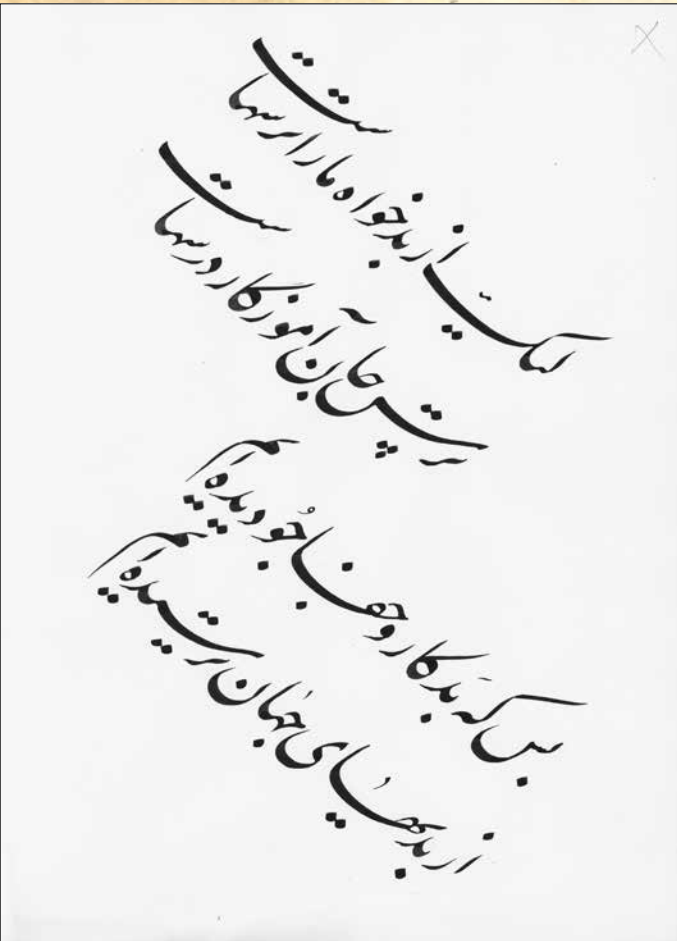 لیک از بدخواه ما را ترسهاست
ترس جان آموزگار درسهاست
بس که بَدکار و جفا جُو دیده‌ایم
از بدیهای جهان ترسیده‌ایم